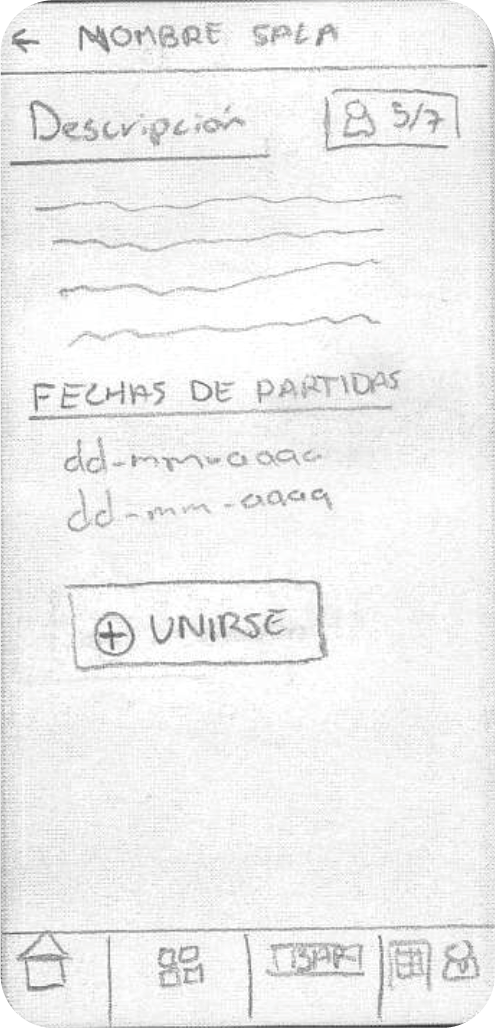 ← NOMBRE SALA
Descripción
5/7
FECHAS DE PARTIDAS
dd-mm-aaaa
dd-mm-aaaa
+ UNIRSE
BAR